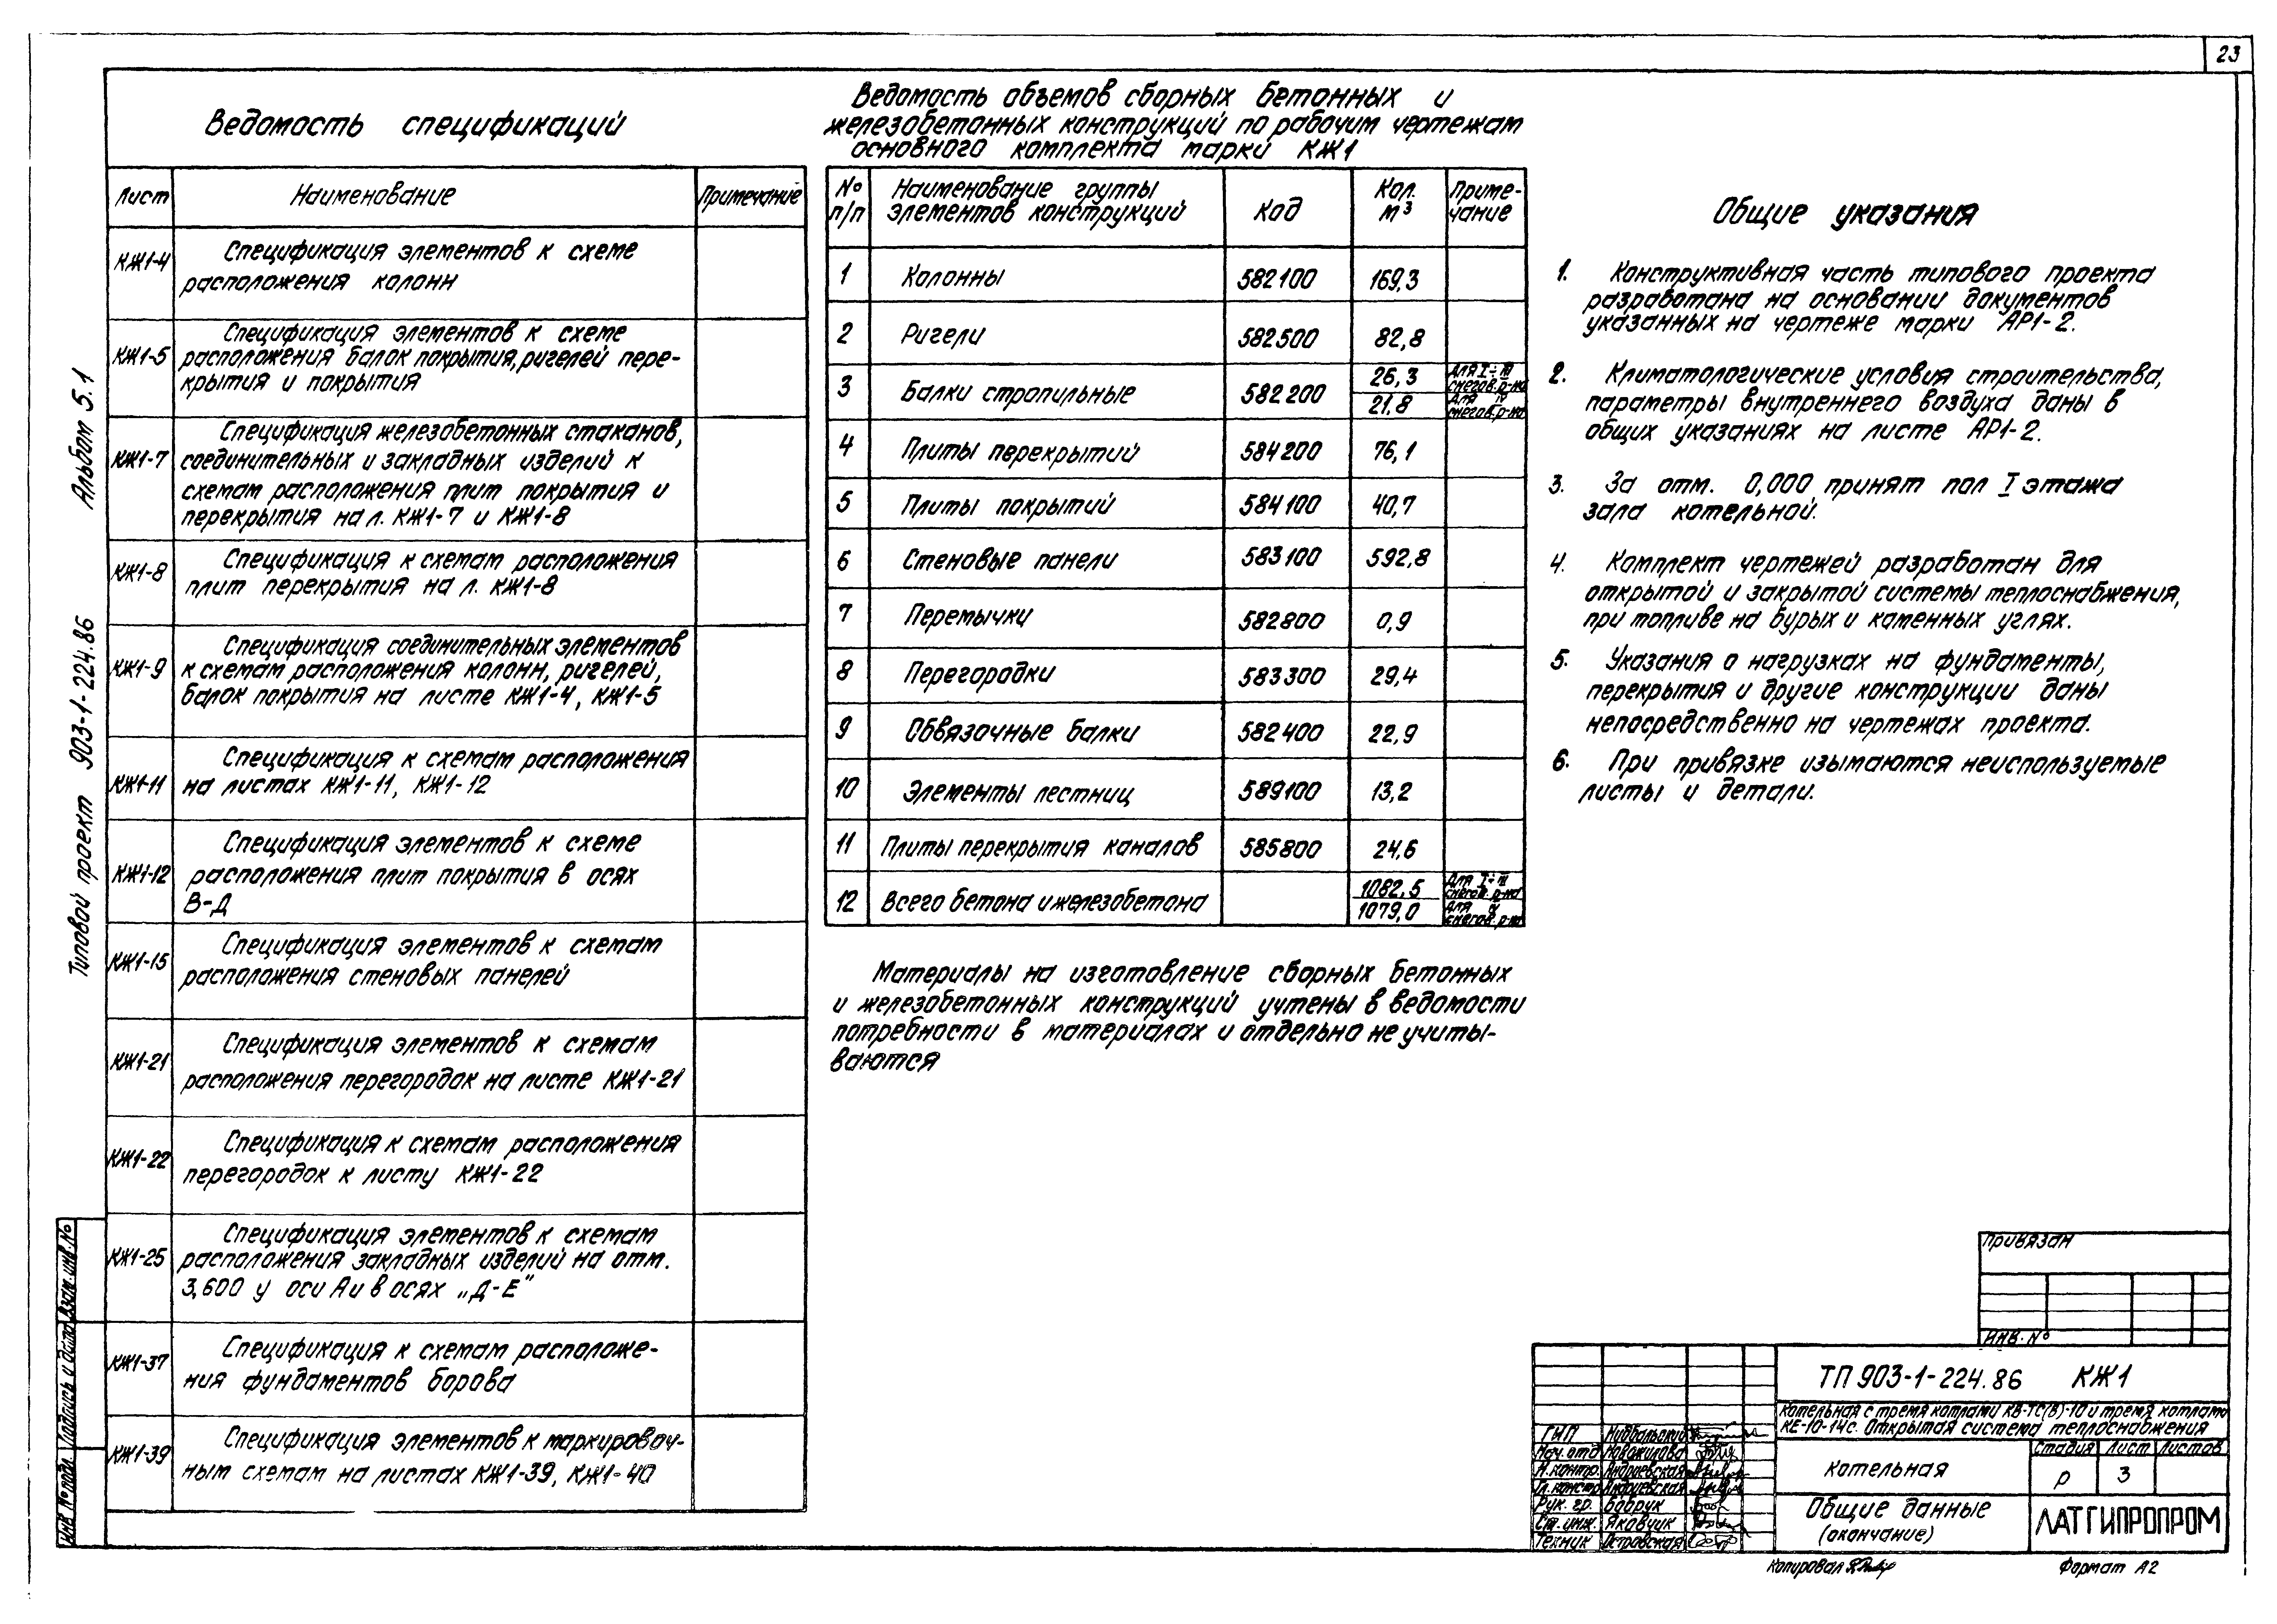 23
Ведомость спецификаций
Лист Наименование Примечание
КЖ1-4 Спецификация элементов к схеме
расположения колонн
КЖ1-5 Спецификация элементов к схеме
расположения балок покрытия, ригелей пере-
крытия и покрытия
КЖ1-7 Спецификация железобетонных стаканов,
соединительных и закладных изделий к
схемам расположения плит покрытия и
перекрытия на л. КЖ1-7 и КЖ1-8
КЖ1-8 Спецификация к схемам расположения
плит перекрытия на л. КЖ1-8
КЖ1-9 Спецификация соединительных элементов
к схемам расположения колонн, ригелей,
балок покрытия на листе КЖ1-4, КЖ1-5
КЖ1-11 Спецификация к схемам расположения
на листах КЖ1-11, КЖ1-12
КЖ1-12 Спецификация элементов к схеме
расположения плит покрытия в осях
В-Д
КЖ1-15 Спецификация элементов к схемам
расположения стеновых панелей
КЖ1-21 Спецификация элементов к схемам
расположения перегородок на листе КЖ1-21
КЖ1-22 Спецификация к схемам расположения
перегородок к листу КЖ1-22
КЖ1-25 Спецификация элементов к схемам
расположения закладных изделий на отм.
3,600 у оси А и в осях „Д-Е"
КЖ1-37 Спецификация к схемам расположе-
ния фундаментов борова
КЖ1-39 Спецификация элементов к маркировоч-
ным схемам на листах КЖ1-39, КЖ1-40
Ведомость объемов сборных бетонных и
железобетонных конструкций по рабочим чертежам
основного комплекта марки КЖ1
№ п/п Наименование группы элементов конструкций Код Кол. м³ Приме-чание
1 Колонны 582100 169,3
2 Ригели 582500 82,8
3 Балки стропильные 582200 26,3 для I÷III снегов. р-на
21,8 для IV снегов. р-на
4 Плиты перекрытий 584200 76,1
5 Плиты покрытий 584100 40,7
6 Стеновые панели 583100 592,8
7 Перемычки 582800 0,9
8 Перегородки 583300 29,4
9 Обвязочные балки 582400 22,9
10 Элементы лестниц 589100 13,2
11 Плиты перекрытия каналов 585800 24,6
12 Всего бетона и железобетона 1082,5 для I÷III снегов. р-на
1079,0 для IV снегов. р-на
Материалы на изготовление сборных бетонных
и железобетонных конструкций учтены в ведомости
потребности в материалах и отдельно не учиты-
ваются
Общие указания
1. Конструктивная часть типового проекта
разработана на основании документов
указанных на чертеже марки АР1-2.
2. Климатологические условия строительства,
параметры внутреннего воздуха даны в
общих указаниях на листе АР1-2.
3. За отм. 0,000 принят пол I этажа
зала котельной.
4. Комплект чертежей разработан для
открытой и закрытой системы теплоснабжения,
при топливе на бурых и каменных углях.
5. Указания о нагрузках на фундаменты,
перекрытия и другие конструкции даны
непосредственно на чертежах проекта.
6. При привязке изымаются неиспользуемые
листы и детали.
Альбом 5.1
Типовой проект 903-1-224.86
Инв. № подл. Подпись и дата Взам. инв. №
Привязан
Инв. №
ТП 903-1-224.86 КЖ1
Котельная с тремя котлами КВ-ТС(В)-10 и тремя котлами
КЕ-10-14с. Открытая система теплоснабжения
Котельная
Стадия Лист Листов
р 3
Общие данные
(окончание)
ЛАТГИПРОПРОМ
ГИП
Нач. отд Новожилова
Н. контр. Андриевская
Гл. констр Андриевская
Рук. гр. Бабрук
Ст. инж. Яковчук
Техник Островская
Копировал
Формат А2